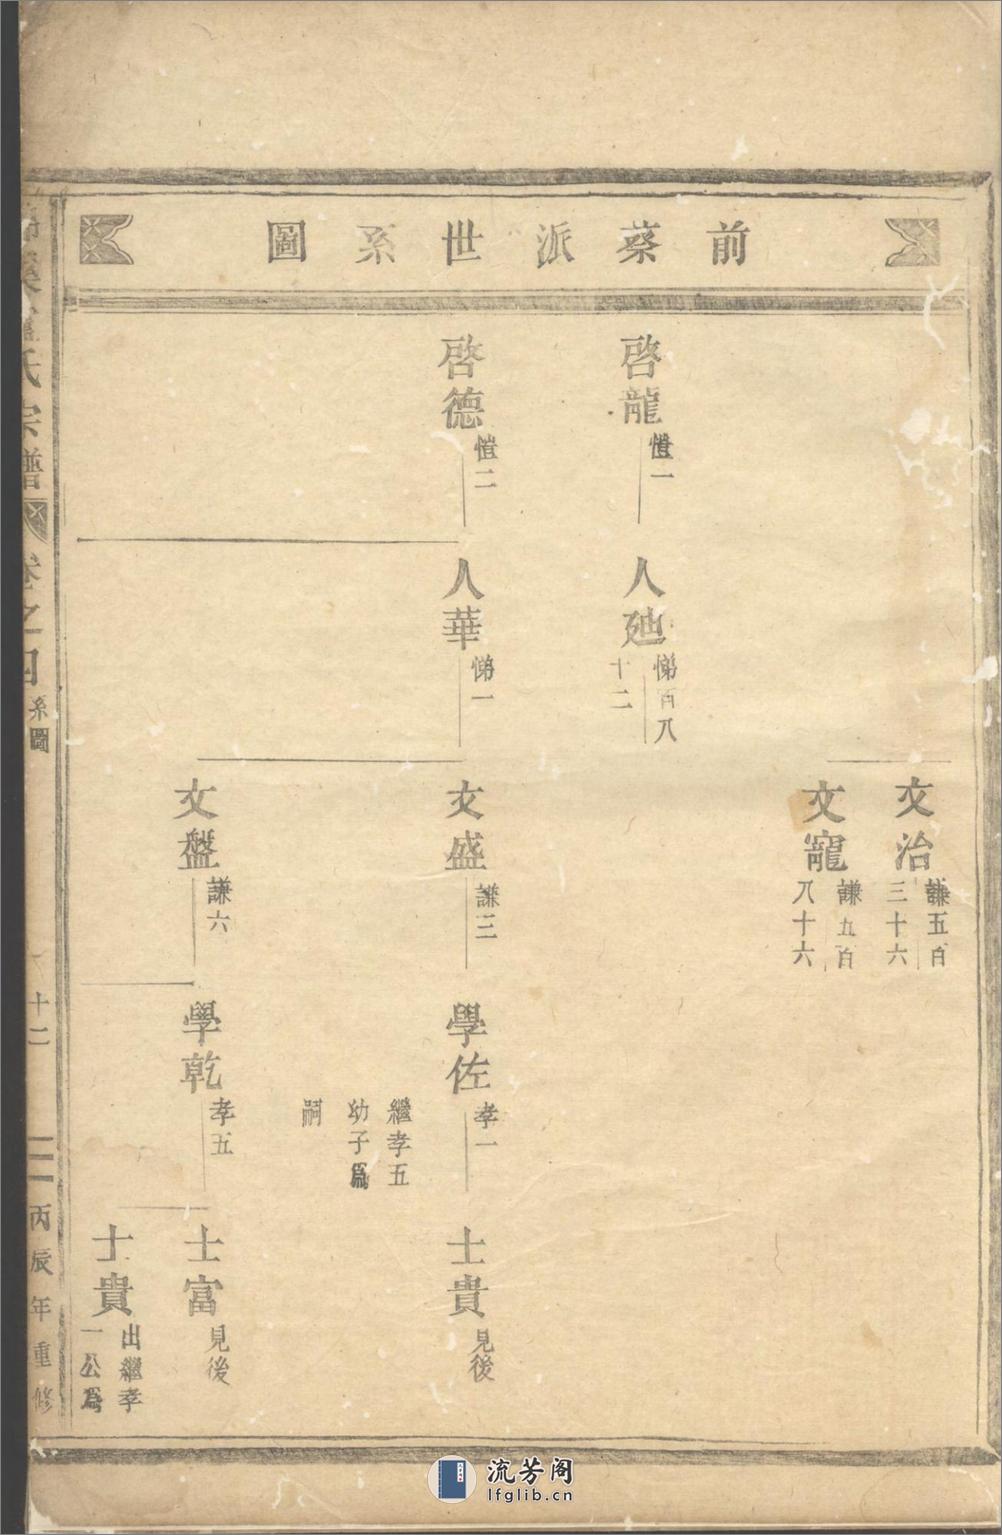 前蔡派世系圖
文治
謙五百
三十六
文寵
謙九百
八十六
啓龍
愷一
人廸
悌百八
十二
啓德
愷二
人華
悌一
文盛
謙三
學佐
孝一
繼孝五
幼子爲
嗣
士貴
見後
文盤
謙六
學乾
孝五
士富
見後
士貴
出繼孝
一公爲
氏宗譜
卷之四
系圖
十二
丙辰年重修
流芳阁
lfglib.cn